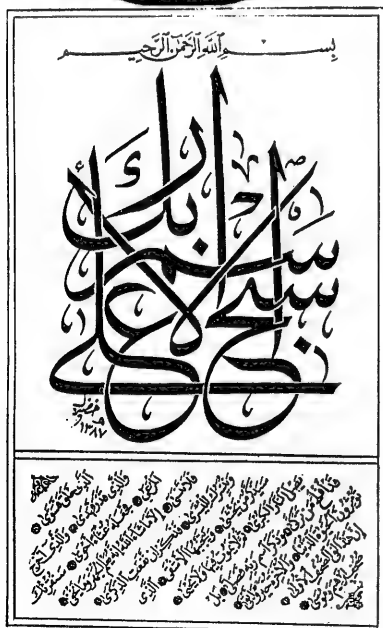 بسم الله الرحمن الرحيم
سبح اسم ربك الأعلى
١٣٨٧
الذي خلق فسوى
والذي قدر فهدى والذي أخرج
المرعى فجعله غثاء أحوى سنقرئك
فلا تنسى إلا ما شاء الله إنه يعلم الجهر وما يخفى
ونيسرك لليسرى فذكر إن نفعت الذكرى
سيذكر من يخشى ويتجنبها الأشقى الذي
يصلى النار الكبرى ثم لا يموت فيها ولا يحيى
قد أفلح من تزكى وذكر اسم ربه فصلى بل
تؤثرون الحيوة الدنيا والآخرة خير وأبقى
إن هذا لفي الصحف الأولى
صحف إبرهيم وموسى